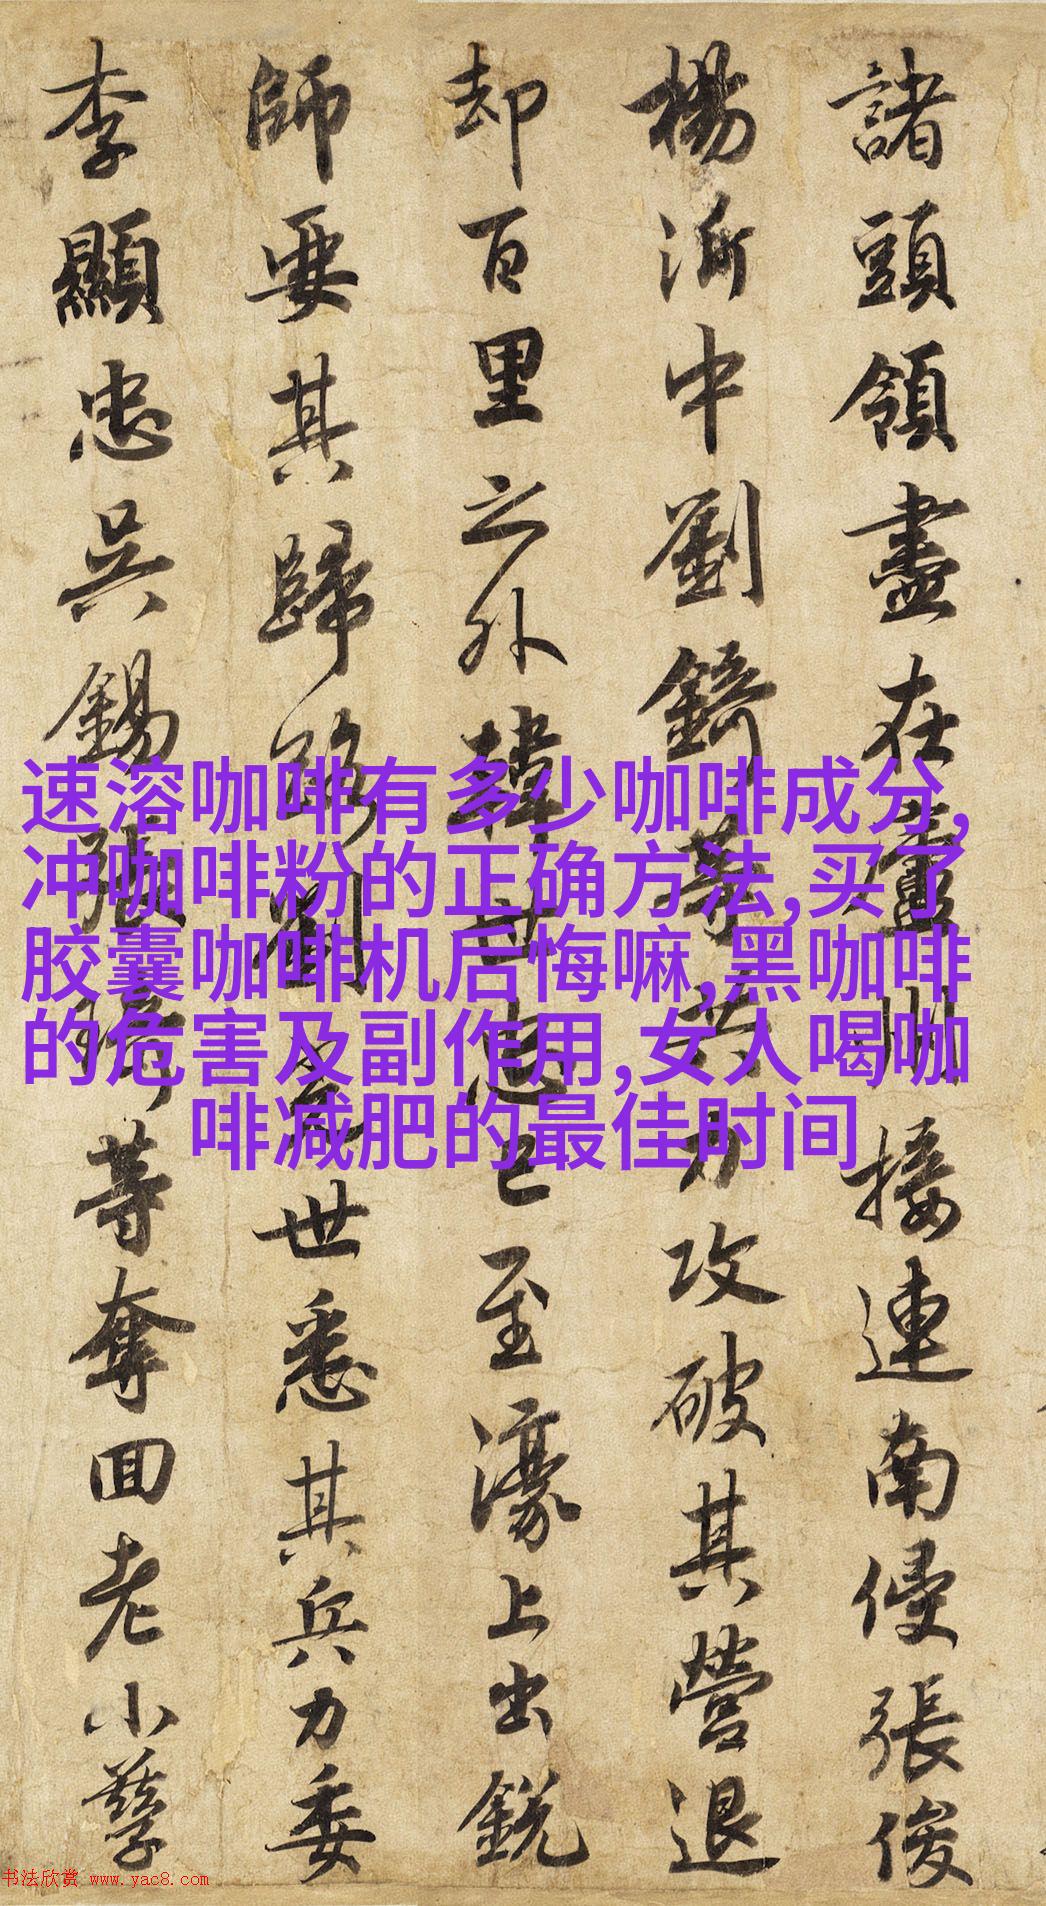 諸頭領盡在州接連南侵張俊
楊沂中劉錡等共力攻破其營退
却百里之外韓世忠已至濠上出銳
師要其歸路劉光世悉其兵力委
李顯忠吳錫張琦等奪囬老小孳
速溶咖啡有多少咖啡成分,
冲咖啡粉的正确方法,买了
胶囊咖啡机后悔嘛,黑咖啡
的危害及副作用,女人喝咖
啡减肥的最佳时间
书法欣赏 www.yac8.com